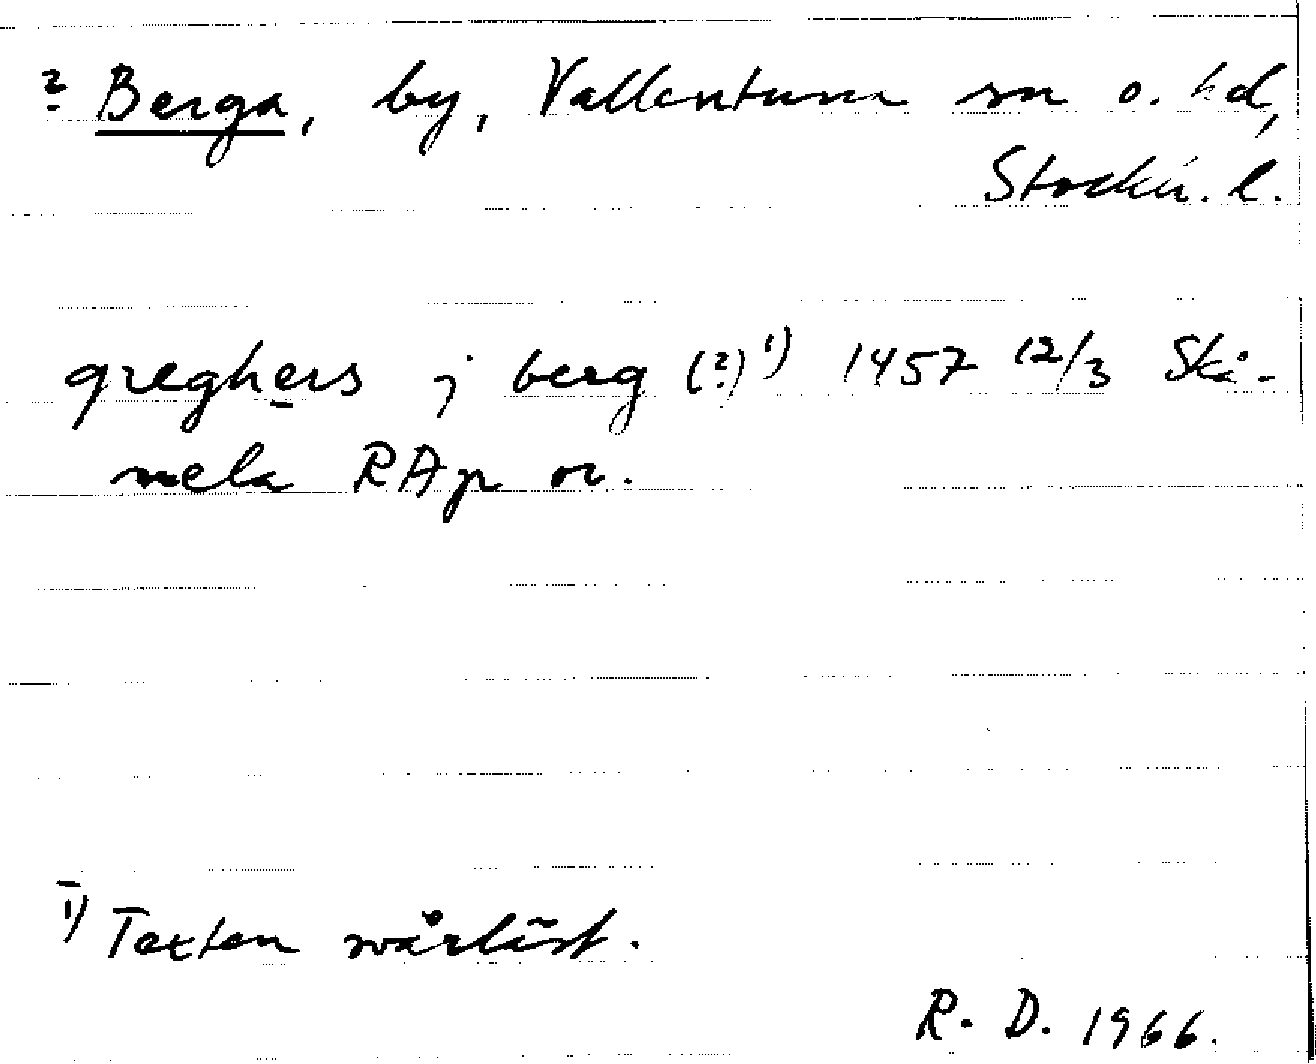 ? Berga, by, Vallentuna sn o. hd,
Stockh. l.
greghers j berg (?) 1) 1457 12/3 Skå-
mela RAp or.
1) Texten svårläst.
R. D. 1966.